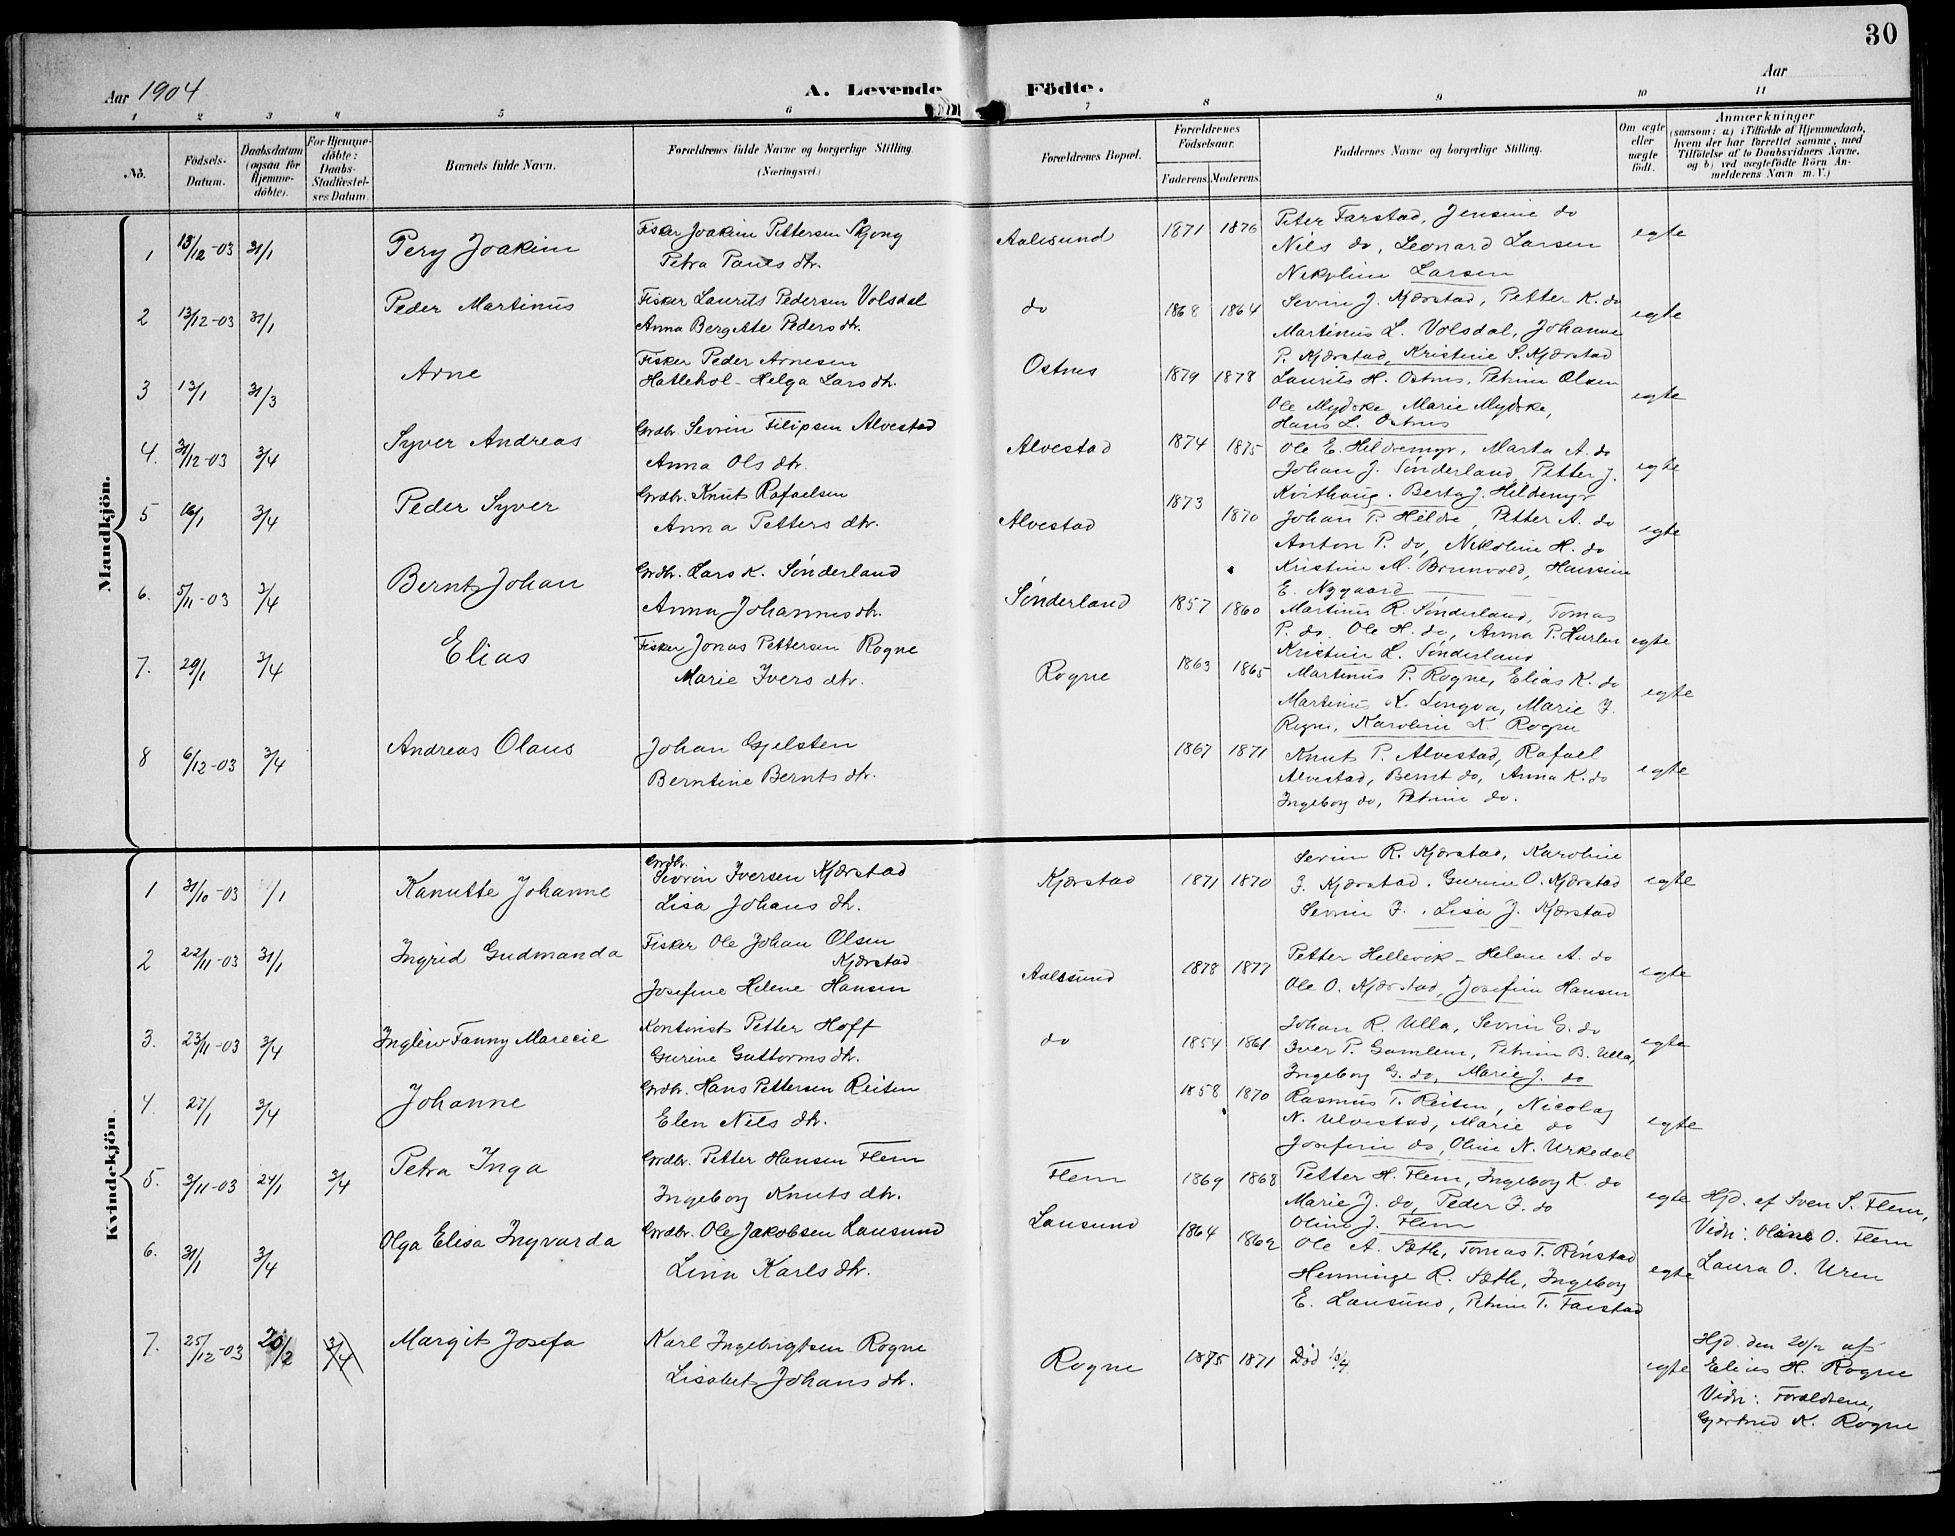 30
Aar 1904
A. Levende
Födte.
Aar
1 2 3 4 5 6 7 8 9 10 11
No.
Födsels-Datum.
Daabsdatum (ogsaa for Hjemmedöbte).
For Hjemmedöbte: Daabs-Stadfæstelses Datum.
Barnets fulde Navn.
Forældrenes fulde Navne og borgerlige Stilling (Næringsvei)
Forældrenes Bopæl.
Forældrenes Födselsaar.
Faderens. Moderens.
Faddernes Navne og borgerlige Stilling.
Om ægte eller uægte födt.
Anmærkninger
(saasom: a) i Tilfælde af Hjemmedaab, hvem der har forrettet samme, med Tilföielse af to Daabsvidners Navne, og b) ved uægtefödte Börn Anmelderens Navn m. V.)
Mandkjön.
1 13/12-03 31/1 Pery Joakim Fisker Joakim Pettersen Skjong Aalesund 1871 1876 Peter Farstad, Jensine do egte
Petra Pauls dtr. Nils do, Leonard Larsen
Nikoline Larsen
2 13/12-03 31/1 Peder Martinus Fisker Laurits Pedersen Volsdal do 1868 1864 Sevrin J. Kjærstad, Petter K. do egte
Anna Bergitte Peders dtr. Martinus L. Volsdal, Johanne
P. Kjærstad, Kristine S. Kjærstad
3 13/1 31/3 Arne Fisker Peder Arnesen Ostnes 1879 1878 Laurits H. Ostnes, Petrine Olsen egte
Hatlehol - Helga Lars dtr. Ole Mydske, Marie Mydske,
Hans L. Ostnes
4. 31/12-03 3/4 Syver Andreas Grdbr. Sevrin Filipsen Alvestad Alvestad 1874 1875 Ole E. Hildremyr, Marta A. do egte
Anna Ols dtr. Johan J. Sønderland, Petter J.
Kvithaug. Berta J. Hildemyr
5 16/1 3/4 Peder Syver Grdbr. Knut Rafaelsen Alvestad 1873 1870 Johan P. Hildre, Petter A. do egte
Anna Petters dtr. Anton P. do, Nikoline H. do
Kristine M. Brunvold, Hansine
E. Nygaard
6. 5/11-03 3/4 Bernt Johan Grdbr. Lars K. Sønderland Sønderland 1857 1860 Martinus R. Sønderland, Tomas egte
Anna Johannes dtr. P. do. Ole H. do, Anna P. Hurlen
Kristine L. Sønderland
7. 29/1 3/4 Elias Fisker Jonas Pettersen Rogne Rogne 1863 1865 Martinus P. Rogne, Elias K. do egte
Marie Ivers dtr. Martinus K. Longva, Marie J.
Rogne, Karoline K. Rogne
8 6/12-03 3/4 Andreas Olaus Johan Gjelsten 1867 1871 Knut P. Alvestad, Rafael egte
Berntine Bernts dtr. Alvestad, Bernt do, Anna K. do
Ingeborg do, Petrine do.
Kvindekjön
1 31/10-03 /1 Kanutte Johanne Grdbr. Sevrin Iversen Kjærstad Kjærstad 1871 1870 Sevrin R. Kjærstad, Karoline egte
Lisa Johans dtr. J. Kjærstad, Gurine O. Kjærstad
Sevrin J. , Lisa J. Kjærstad
2 22/11-03 31/1 Ingrid Gudmanda Fisker Ole Johan Olsen Kjærstad Aalesund 1878 1877 Petter Hellevik - Helene A. do egte
Josefine Helene Hansen Ole O. Kjærstad, Josefine Hansen
3. 23/11-03 3/4 Fanny Kontorist Petter Hoff do 1854 1861 Johan R. Ulla, Sevrin G. do egte
Gurine Guttorms dtr. Iver P. Gamlem, Petrine B. Ulla,
Ingeborg G. do, Marie J. do
4. 27/1 3/4 Johanne Grdbr. Hans Pettersen Reiten 1858 1870 Rasmus T. Reiten, Nicolay egte
Elen Nils dtr. N. Ulvestad, Marie do
Josefine do, Oline N. Urkedal
5. 3/11-03 24/1 3/4 Petra Inga Grdbr. Petter Hansen Flem Flem 1869 1868 Petter H. Flem, Ingeborg K. do egte Hjd. af Sven S. Flem,
Ingeborg Knuts dtr. Marie J. do, Peder J. do Vidn: Oline O. Flem
Oline J. Flem Laura O. Uren
6. 31/1 3/4 Olga Elisa Ingvarda Grdbr. Ole Jakobsen Lausund Lausund 1864 1869 Ole A. Sæth, Tomas T. Rønstad egte
Lina Karls dtr. Henninge R. Sæth, Ingeborg
E. Lausund, Petrine T. Farstad
7. 25/12-03 20/2 3/4 Margit Josefa Karl Ingebrigtsen Rogne Rogne 1875 1871 Död egte Hjd. den 20/2 af
Lisabet Johans dtr. Elias H. Rogne
Vidn: Forældrene,
Gjertrud K. Rogne